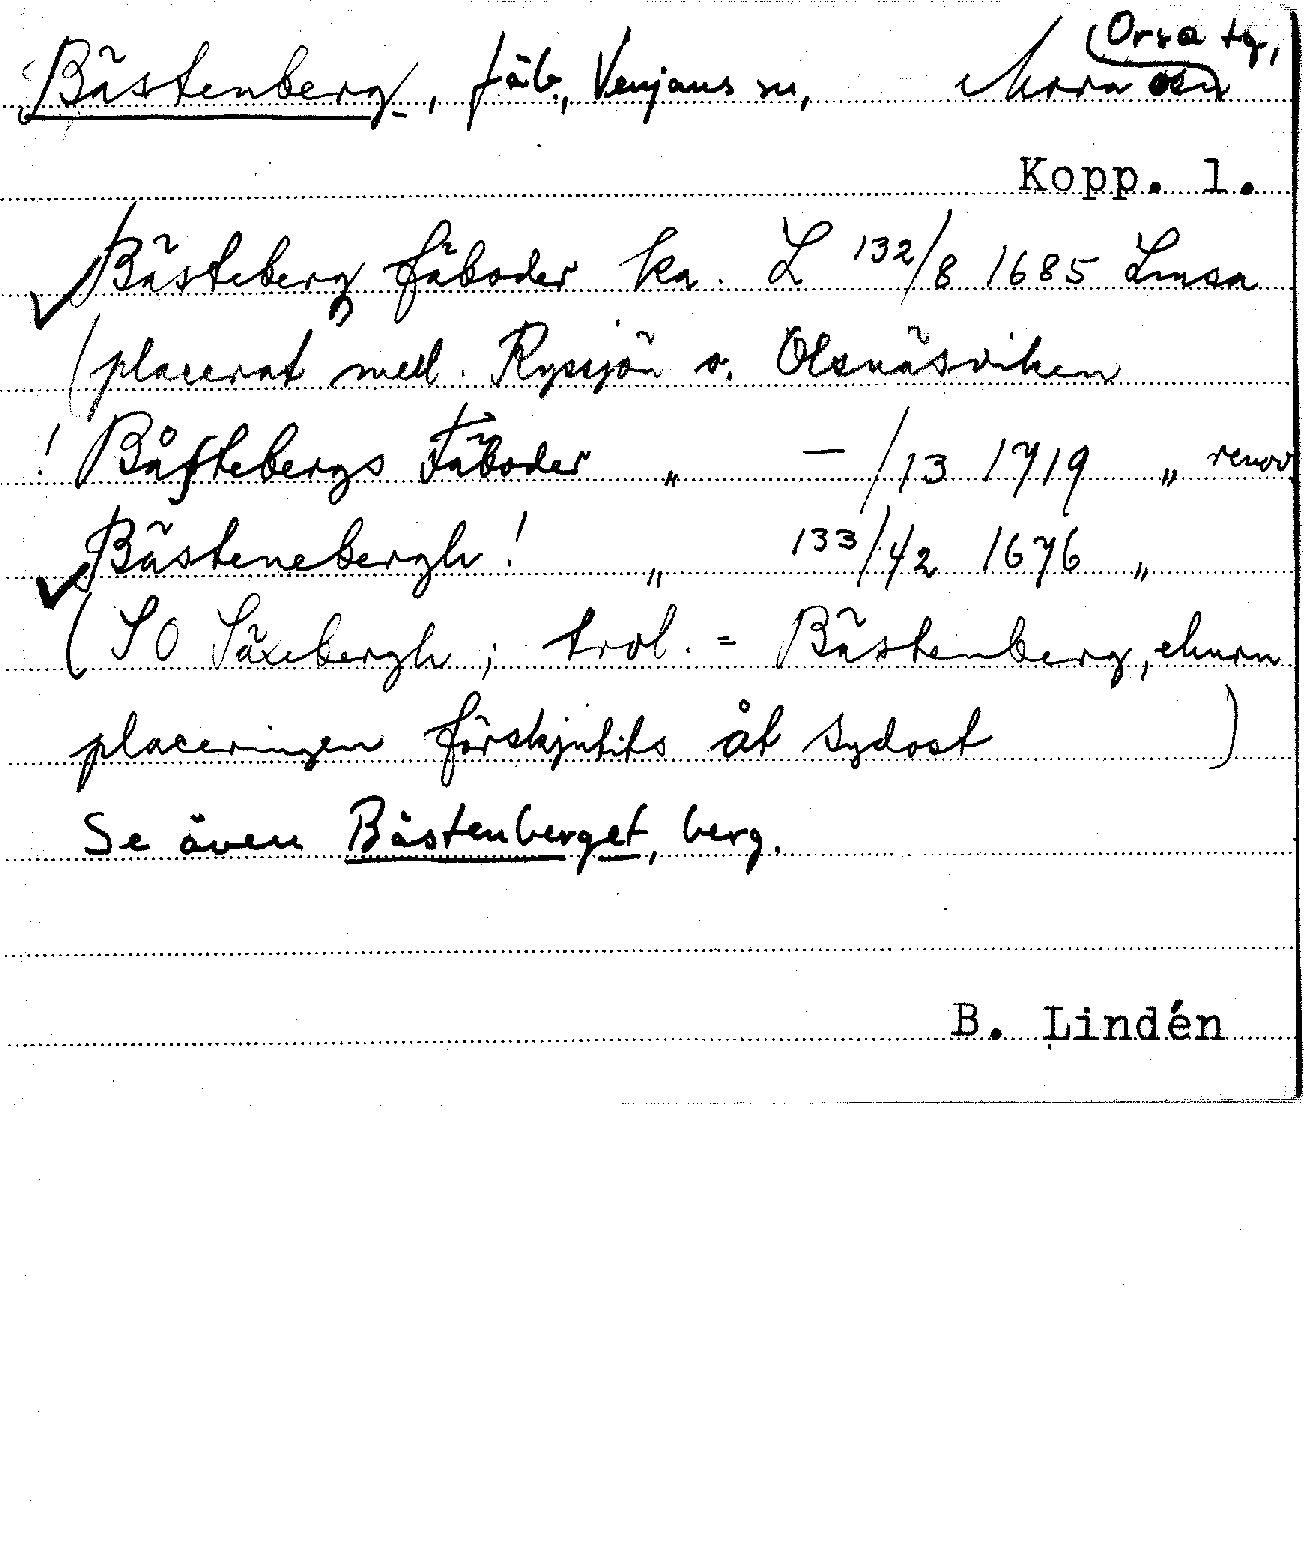 (Orsa tg,
Bästenberg, fäb., Venjans sn, Mora
Kopp. l.
Bästeberg fäboder ka. L 132/8 1685 Lmsa
(placerat mell. Ryssjön o. Olsnäsviken
! Båstebergs Fäboder „ — /13 1719 „ renov
Bästenebergh! „ 133/42 1676 „
(SO Säxebergh; trol. = Bästenberg, ehuru
placeringen förskjutits åt sydost )
Se även Bästenberget, berg.
B. Lindén